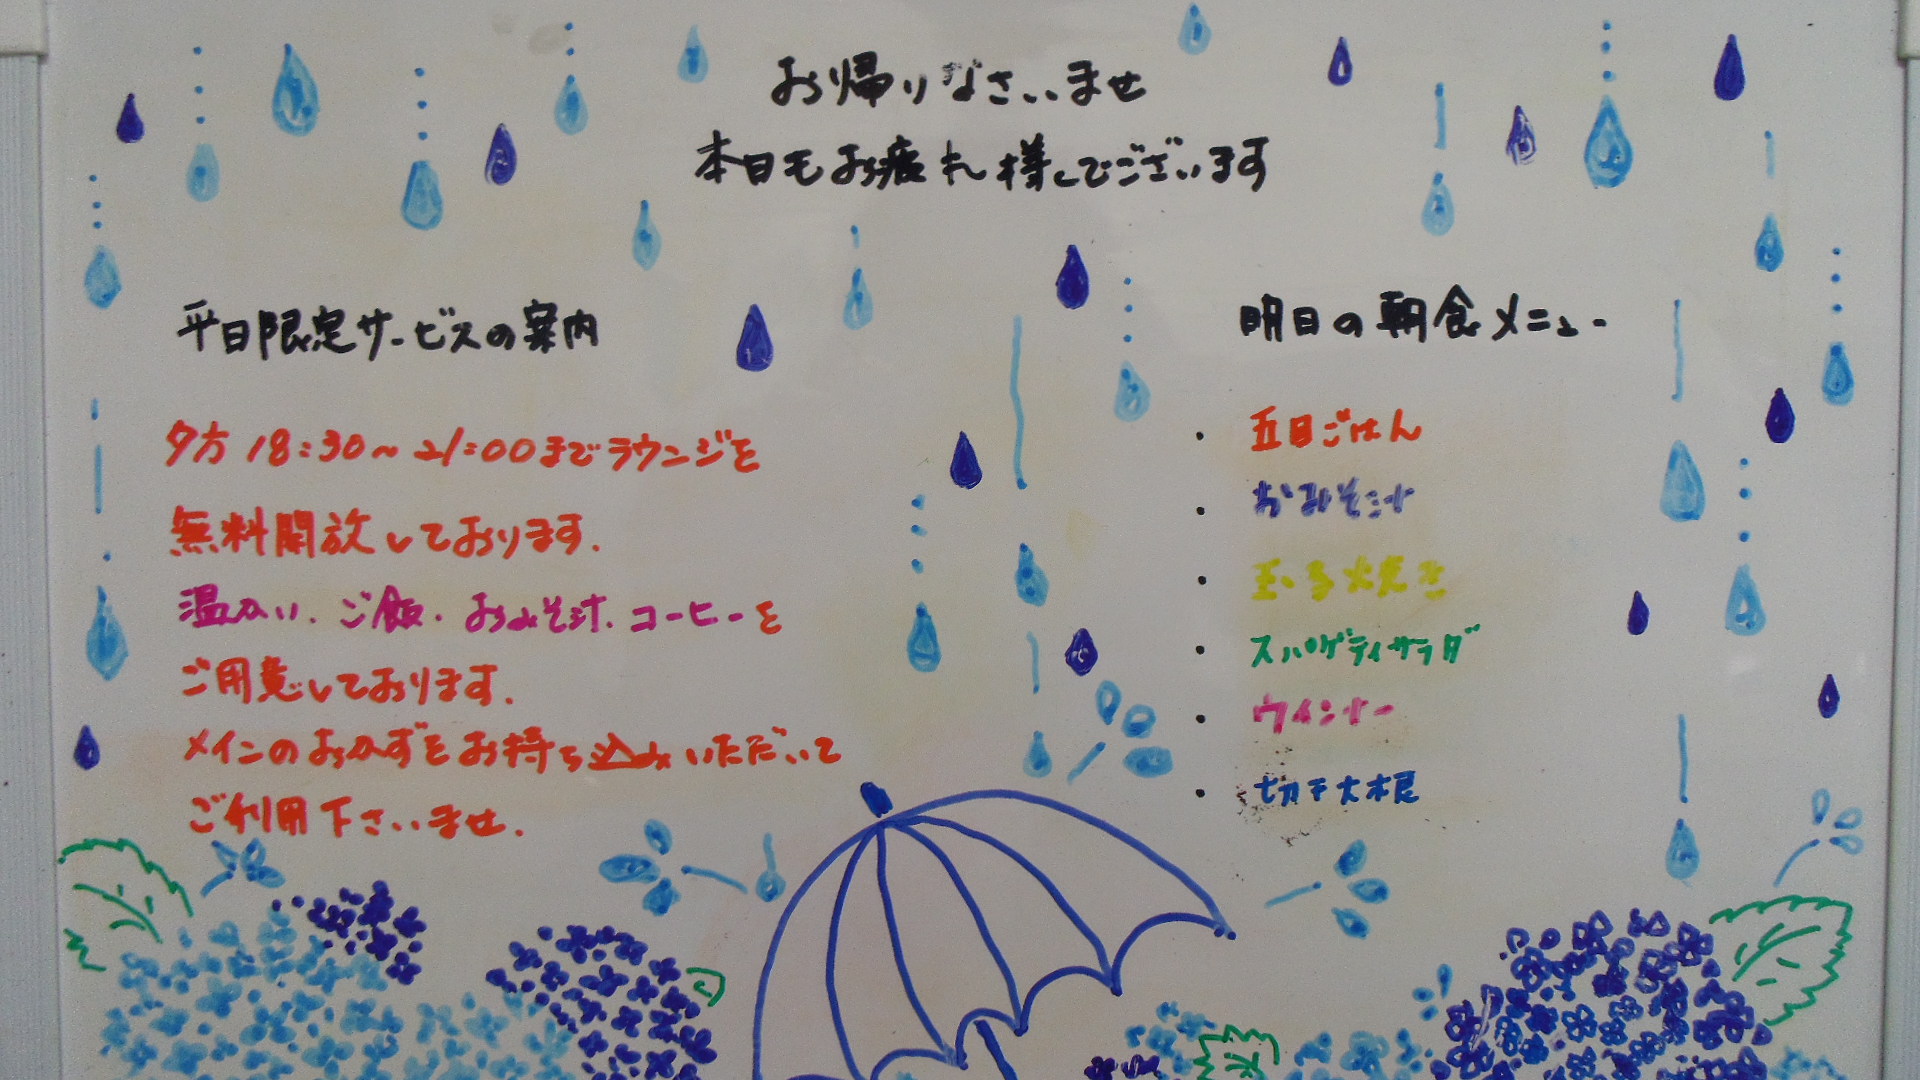 お帰りなさいませ
本日もお疲れ様でございます
平日限定サービスの案内
夕方 18:30～21:00までラウンジを
無料開放しております.
温かい.ご飯.おみそ汁.コーヒーを
ご用意しております.
メインのおかずをお持ち込みいただいて
ご利用下さいませ.
明日の朝食メニュー
・ 五目ごはん
・ おみそ汁
・ 玉子焼き
・ スパゲティサラダ
・ ウインナー
・ 切干大根